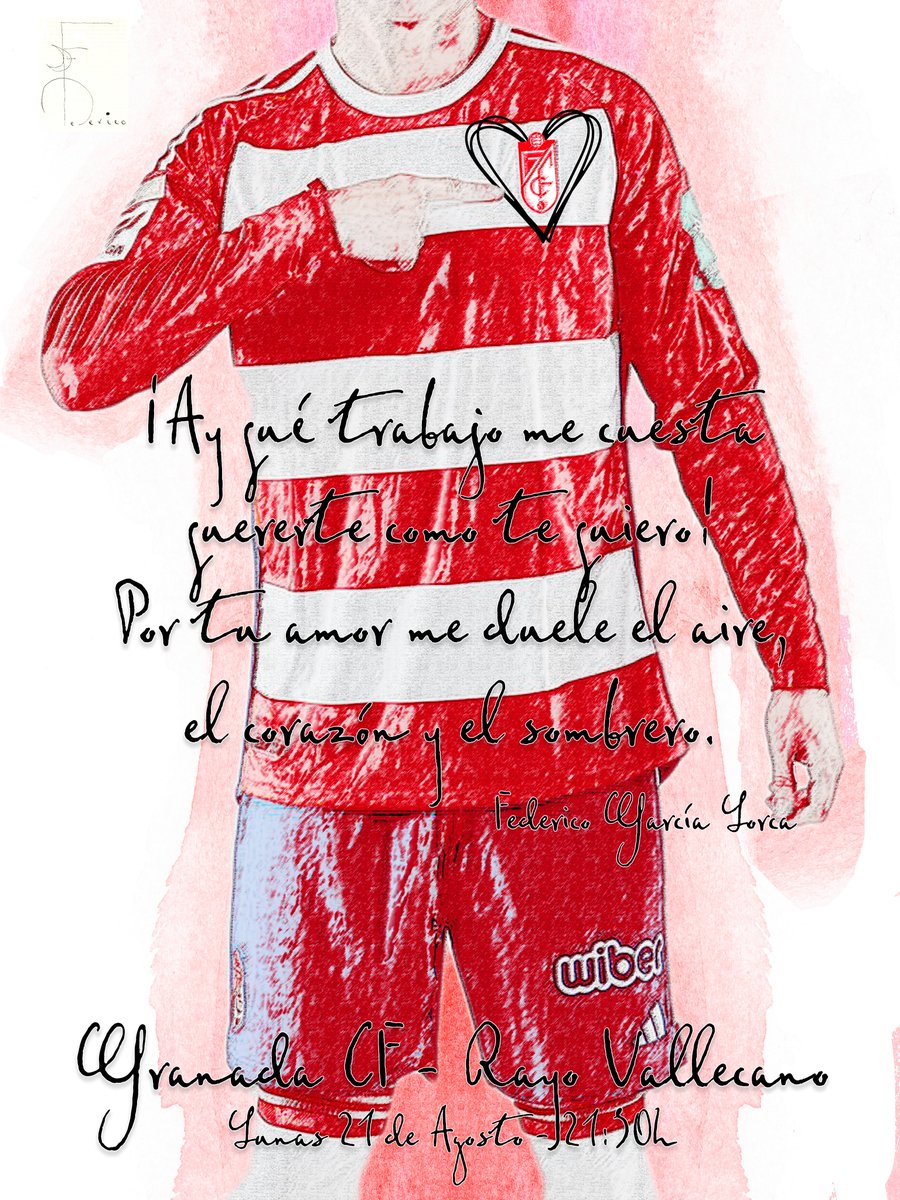 Federico
¡Ay qué trabajo me cuesta
quererte como te quiero!
Por tu amor me duele el aire,
el corazón y el sombrero.
Federico García Lorca
wiber
Granada CF - Rayo Vallecano
Lunas 21 de Agosto - 21:30h